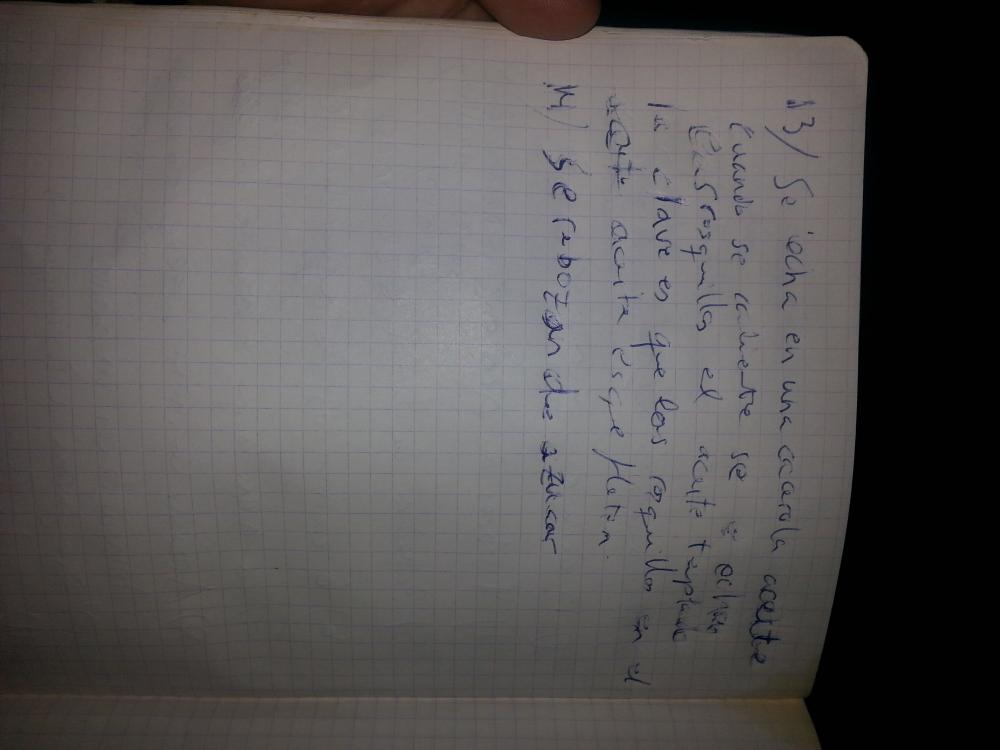 13/ Se echa en una cacarola aceite
Cuando se caliente se echan
las rosquillas el aceite templado
la clave es que las rosquillas en el
aceite es que floten.
14/ Se rebozan de azucar